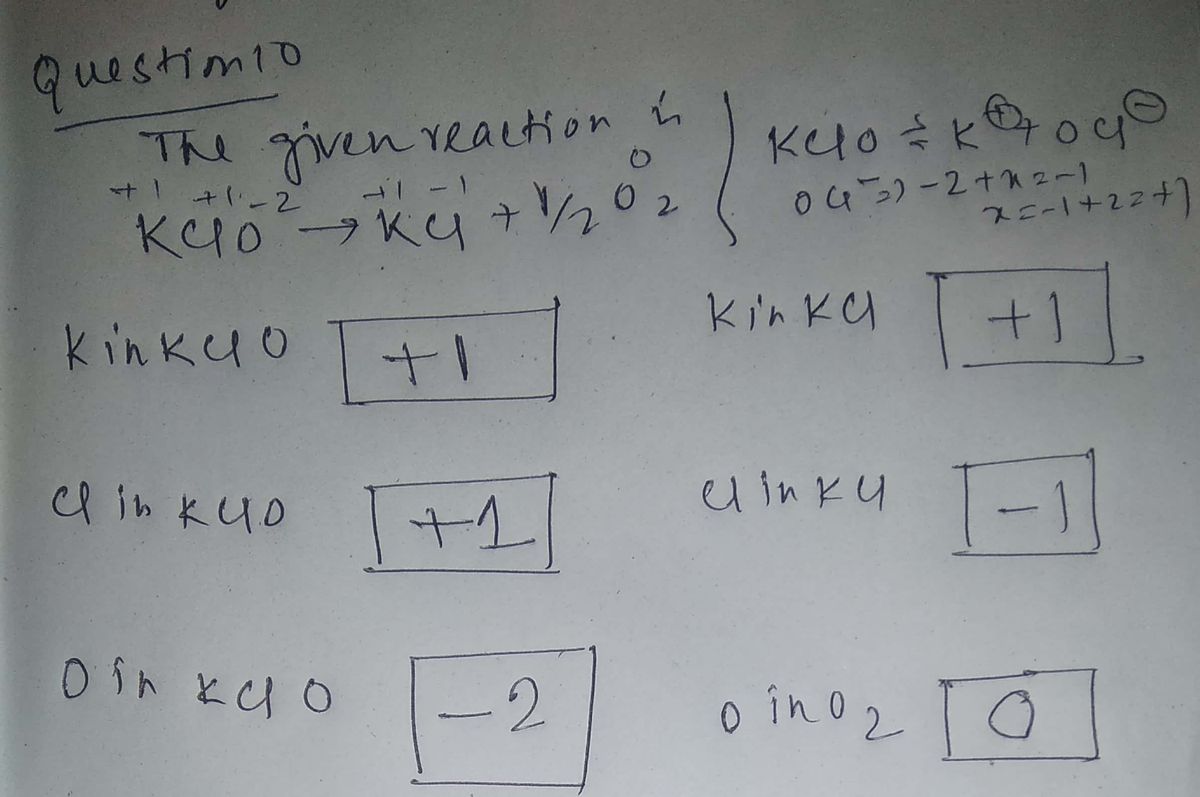 Question 10
The given reaction is
+1 +1 -2 +1 -1 0
KClO → KCl + 1/2 O2
KClO ⇌ K⊕ + OCl⊖
OCl⁻ ⇒ -2 + x = -1
x = -1 + 2 = +1
K in KClO +1
K in KCl +1
Cl in KClO +1
Cl in KCl -1
O in KClO -2
O in O2 0